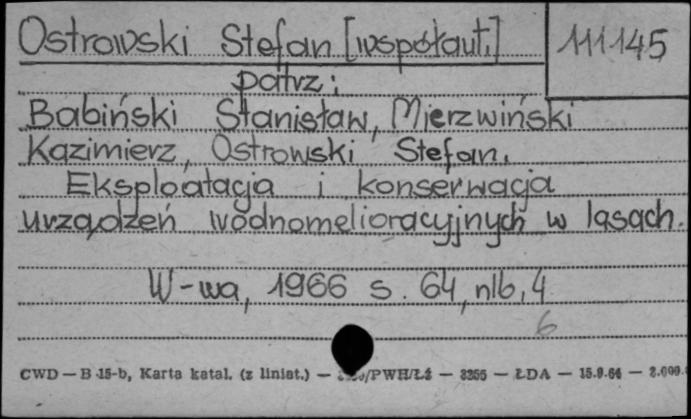 Ostrowski Stefan [współaut.] 111145
patrz:
Babiński Stanisław, Mierzwiński
Kazimierz, Ostrowski Stefan.
Eksploatacja i konserwacja
urządzeń wodnomelioracyjnych w lasach.
W-wa, 1966 s. 64, nlb, 4
6
CWD — B 15-b, Karta katal. (z liniat.) — /PWH/Łź — 3255 — ŁDA — 15.9.64 — 2.000.